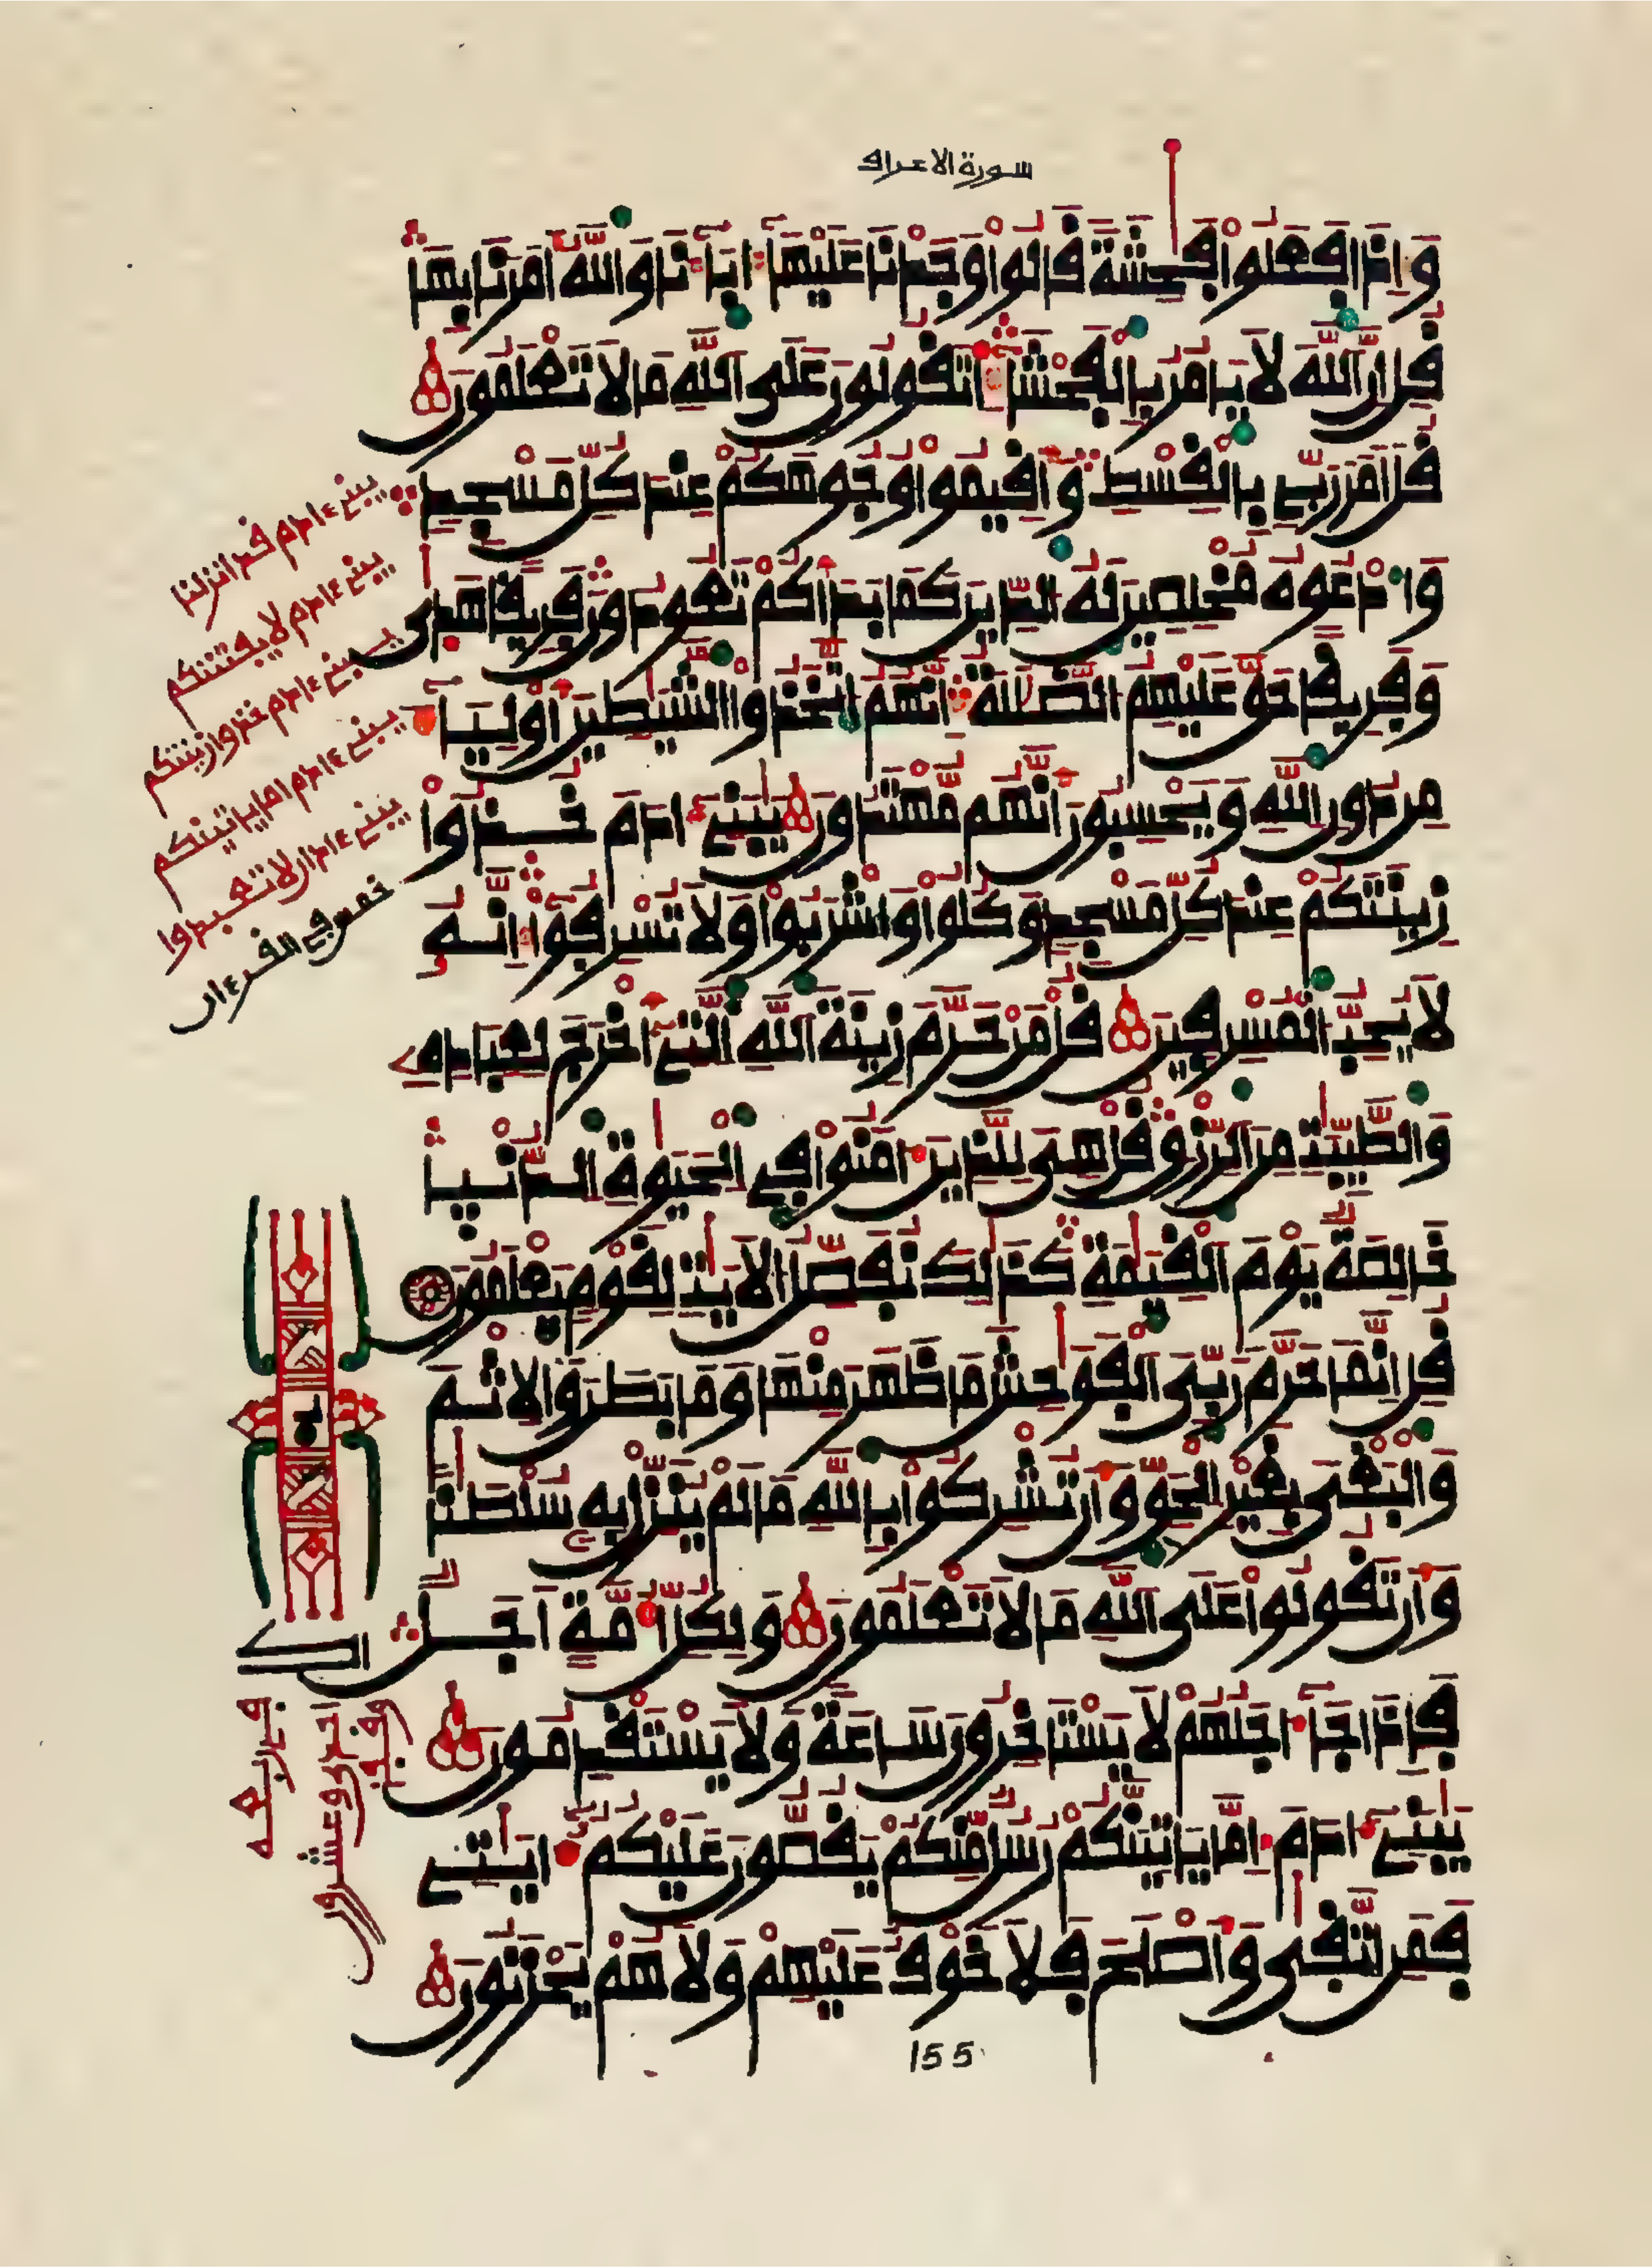 سورة الاعراف
وَإِذَا فَعَلُوا فَٰحِشَةً قَالُوا وَجَدْنَا عَلَيْهَا ءَابَآءَنَا وَاللَّهُ أَمَرَنَا بِهَا
قُلْ إِنَّ اللَّهَ لَا يَامُرُ بِالْفَحْشَآءِ اَتَقُولُونَ عَلَى اللَّهِ مَا لَا تَعْلَمُونَ
قُلْ اَمَرَ رَبِّے بِالْقِسْطِ وَأَقِيمُوا وُجُوهَكُمْ عِندَ كُلِّ مَسْجِدٍ
وَادْعُوهُ مُخْلِصِينَ لَهُ الدِّينَ كَمَا بَدَأَكُمْ تَعُودُونَ فَرِيقًا هَدَىٰ
وَفَرِيقًا حَقَّ عَلَيْهِمُ الضَّلَٰلَةُ إِنَّهُمُ اتَّخَذُوا الشَّيَٰطِينَ أَوْلِيَآءَ
مِن دُونِ اللَّهِ وَيَحْسِبُونَ أَنَّهُم مُّهْتَدُونَ يَٰبَنِےٓ ءَادَمَ خُذُوا
زِينَتَكُمْ عِندَ كُلِّ مَسْجِدٍ وَكُلُوا وَاشْرَبُوا وَلَا تُسْرِفُوٓا إِنَّهُۥ
لَا يُحِبُّ الْمُسْرِفِينَ قُلْ مَنْ حَرَّمَ زِينَةَ اللَّهِ الَّتِےٓ أَخْرَجَ لِعِبَادِهِۦ
وَالطَّيِّبَٰتِ مِنَ الرِّزْقِ قُلْ هِىَ لِلَّذِينَ ءَامَنُوا فِے الْحَيَوٰةِ الدُّنْيَا
خَالِصَةٌ يَوْمَ الْقِيَٰمَةِ كَذَٰلِكَ نُفَصِّلُ الْأَيَٰتِ لِقَوْمٍ يَعْلَمُونَ
قُلْ إِنَّمَا حَرَّمَ رَبِّىَ الْفَوَٰحِشَ مَا ظَهَرَ مِنْهَا وَمَا بَطَنَ وَالْإِثْمَ
وَالْبَغْىَ بِغَيْرِ الْحَقِّ وَأَن تُشْرِكُوا بِاللَّهِ مَا لَمْ يُنَزِّلْ بِهِۦ سُلْطَٰنًا
وَأَن تَقُولُوا عَلَى اللَّهِ مَا لَا تَعْلَمُونَ وَلِكُلِّ أُمَّةٍ اَجَلٌ
فَإِذَا جَآءَ اجَلُهُمْ لَا يَسْتَاخِرُونَ سَاعَةً وَلَا يَسْتَقْدِمُونَ
يَٰبَنِےٓ ءَادَمَ إِمَّا يَاتِيَنَّكُمْ رُسُلٌ مِّنكُمْ يَقُصُّونَ عَلَيْكُمُۥٓ ءَايَٰتِے
فَمَنِ اتَّقَىٰ وَأَصْلَحَ فَلَا خَوْفٌ عَلَيْهِمْ وَلَا هُمْ يَحْزَنُونَ
يبنے ءادم قد انزلنا
يبنے ءادم لا يفتننكم
يبنے ءادم خذوا زينتكم
يبنے ءادم اما ياتينكم
يبنے ءادم ان لا تعبدوا
خمس في القرءان
155